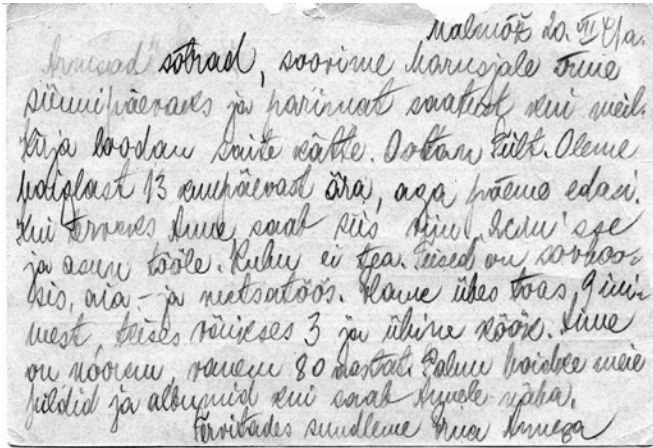 Malmõž 20. VII 41a.
Armsad sõbrad, soovime Marusjale õnne
sünnipäevaks ja parimat saatust kui meil.
Kirja loodan saite kätte. Ootan Teilt. Oleme
haiglast 13 kuupäevast ära, aga põeme edasi.
Kui terveks Anne saab siis viin sse
ja asun tööle. Kuhu ei tea. Teised on sovhoo-
sis, aia- ja metsatöös. Elame ühes toas 9 ini-
mest, teises väikses 3 ja ühine köök. Anne
on noorem, vanem 80 aastat. Palun hoidke meie
pildid ja albumid kui saab Annele näha.
Tervitades suudleme Annega